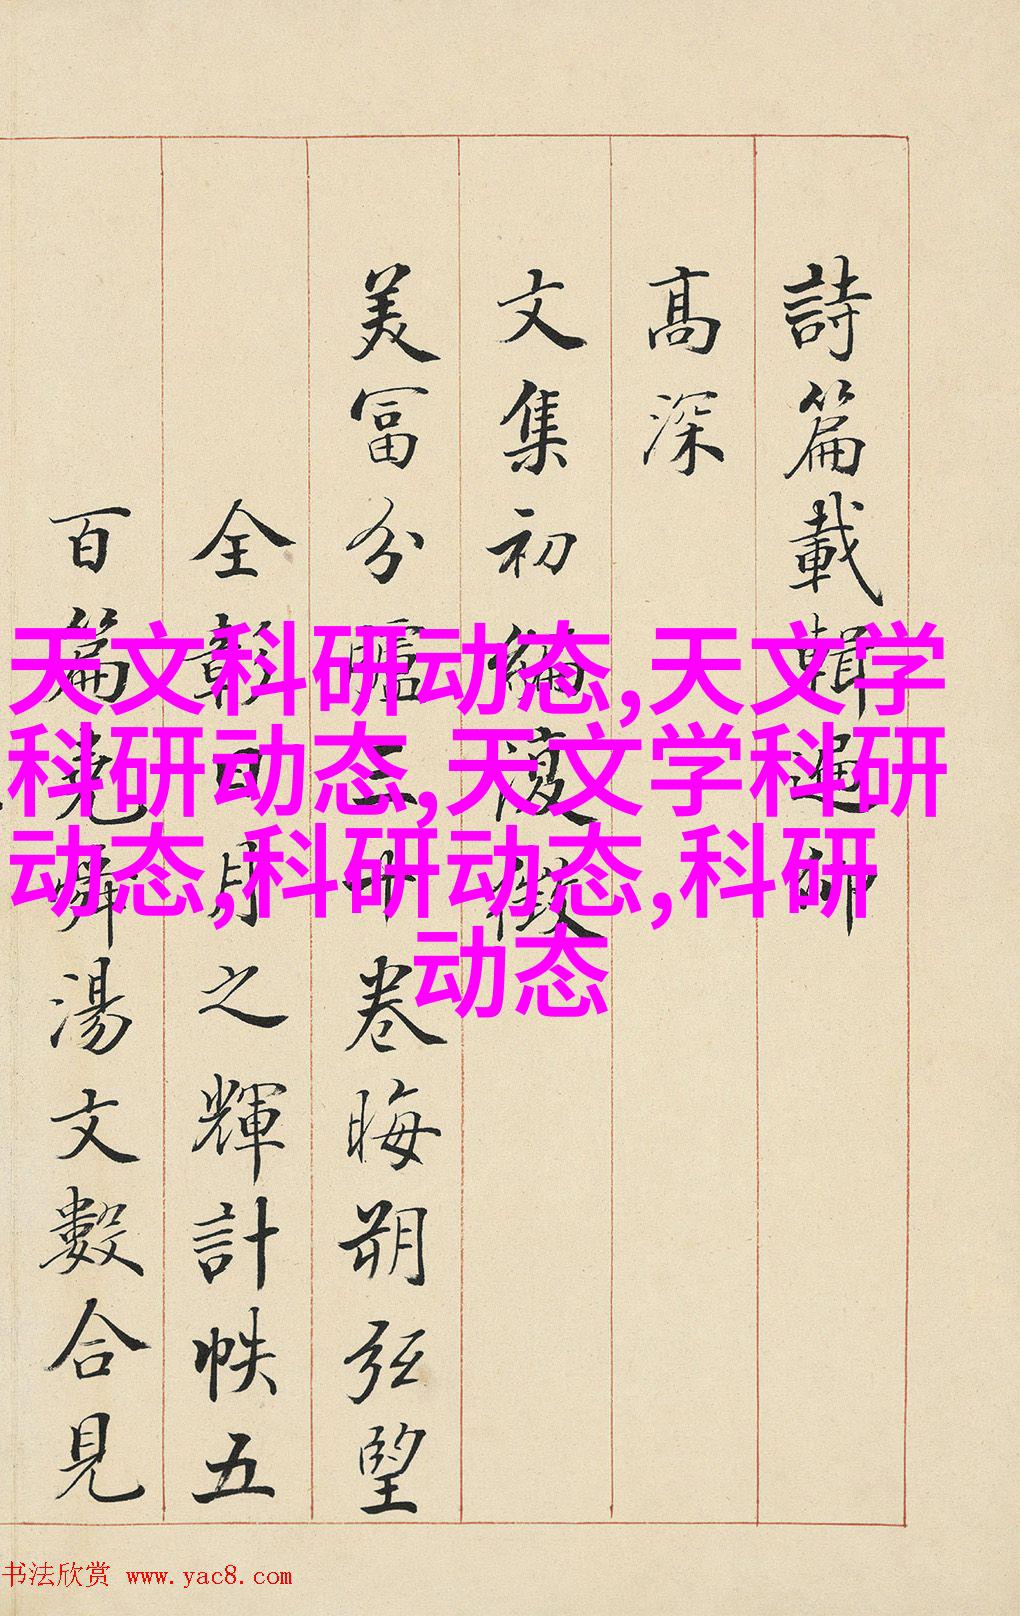 詩篇載輯
高深
文集初編復徵
美富分臚三十卷晦朔弦望
全彰日月之輝計帙五
百篇堯舜湯文數合見
天文科研动态,天文学
科研动态,天文学科研
动态,科研动态,科研
动态
书法欣赏 www.yac8.com